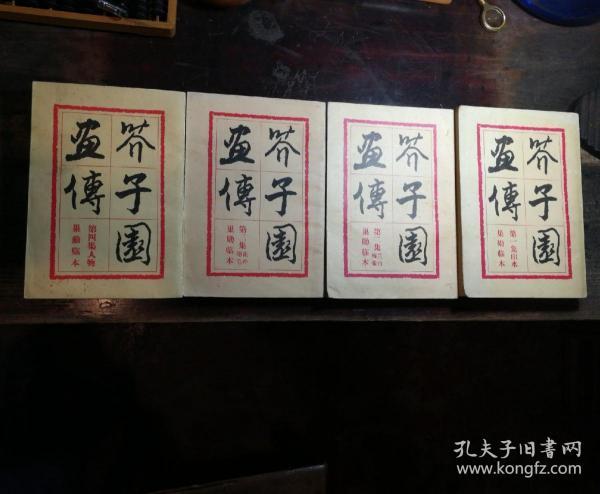 芥子園
畫傳
第四集人物
巢勛臨本
芥子園
畫傳
巢勛臨本
芥子園
畫傳
巢勛臨本
芥子園
畫傳
第一集山水
巢勛臨本
孔夫子旧书网
www.kongfz.com